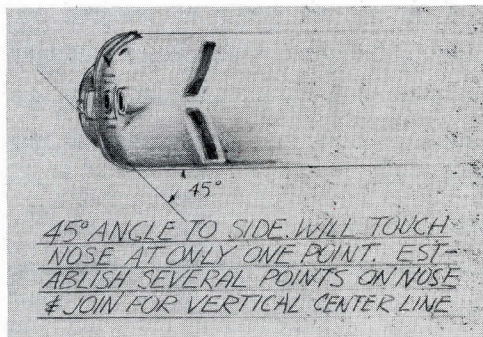 45°
45° ANGLE TO SIDE. WILL TOUCH
NOSE AT ONLY ONE POINT. EST-
ABLISH SEVERAL POINTS ON NOSE
& JOIN FOR VERTICAL CENTER LINE